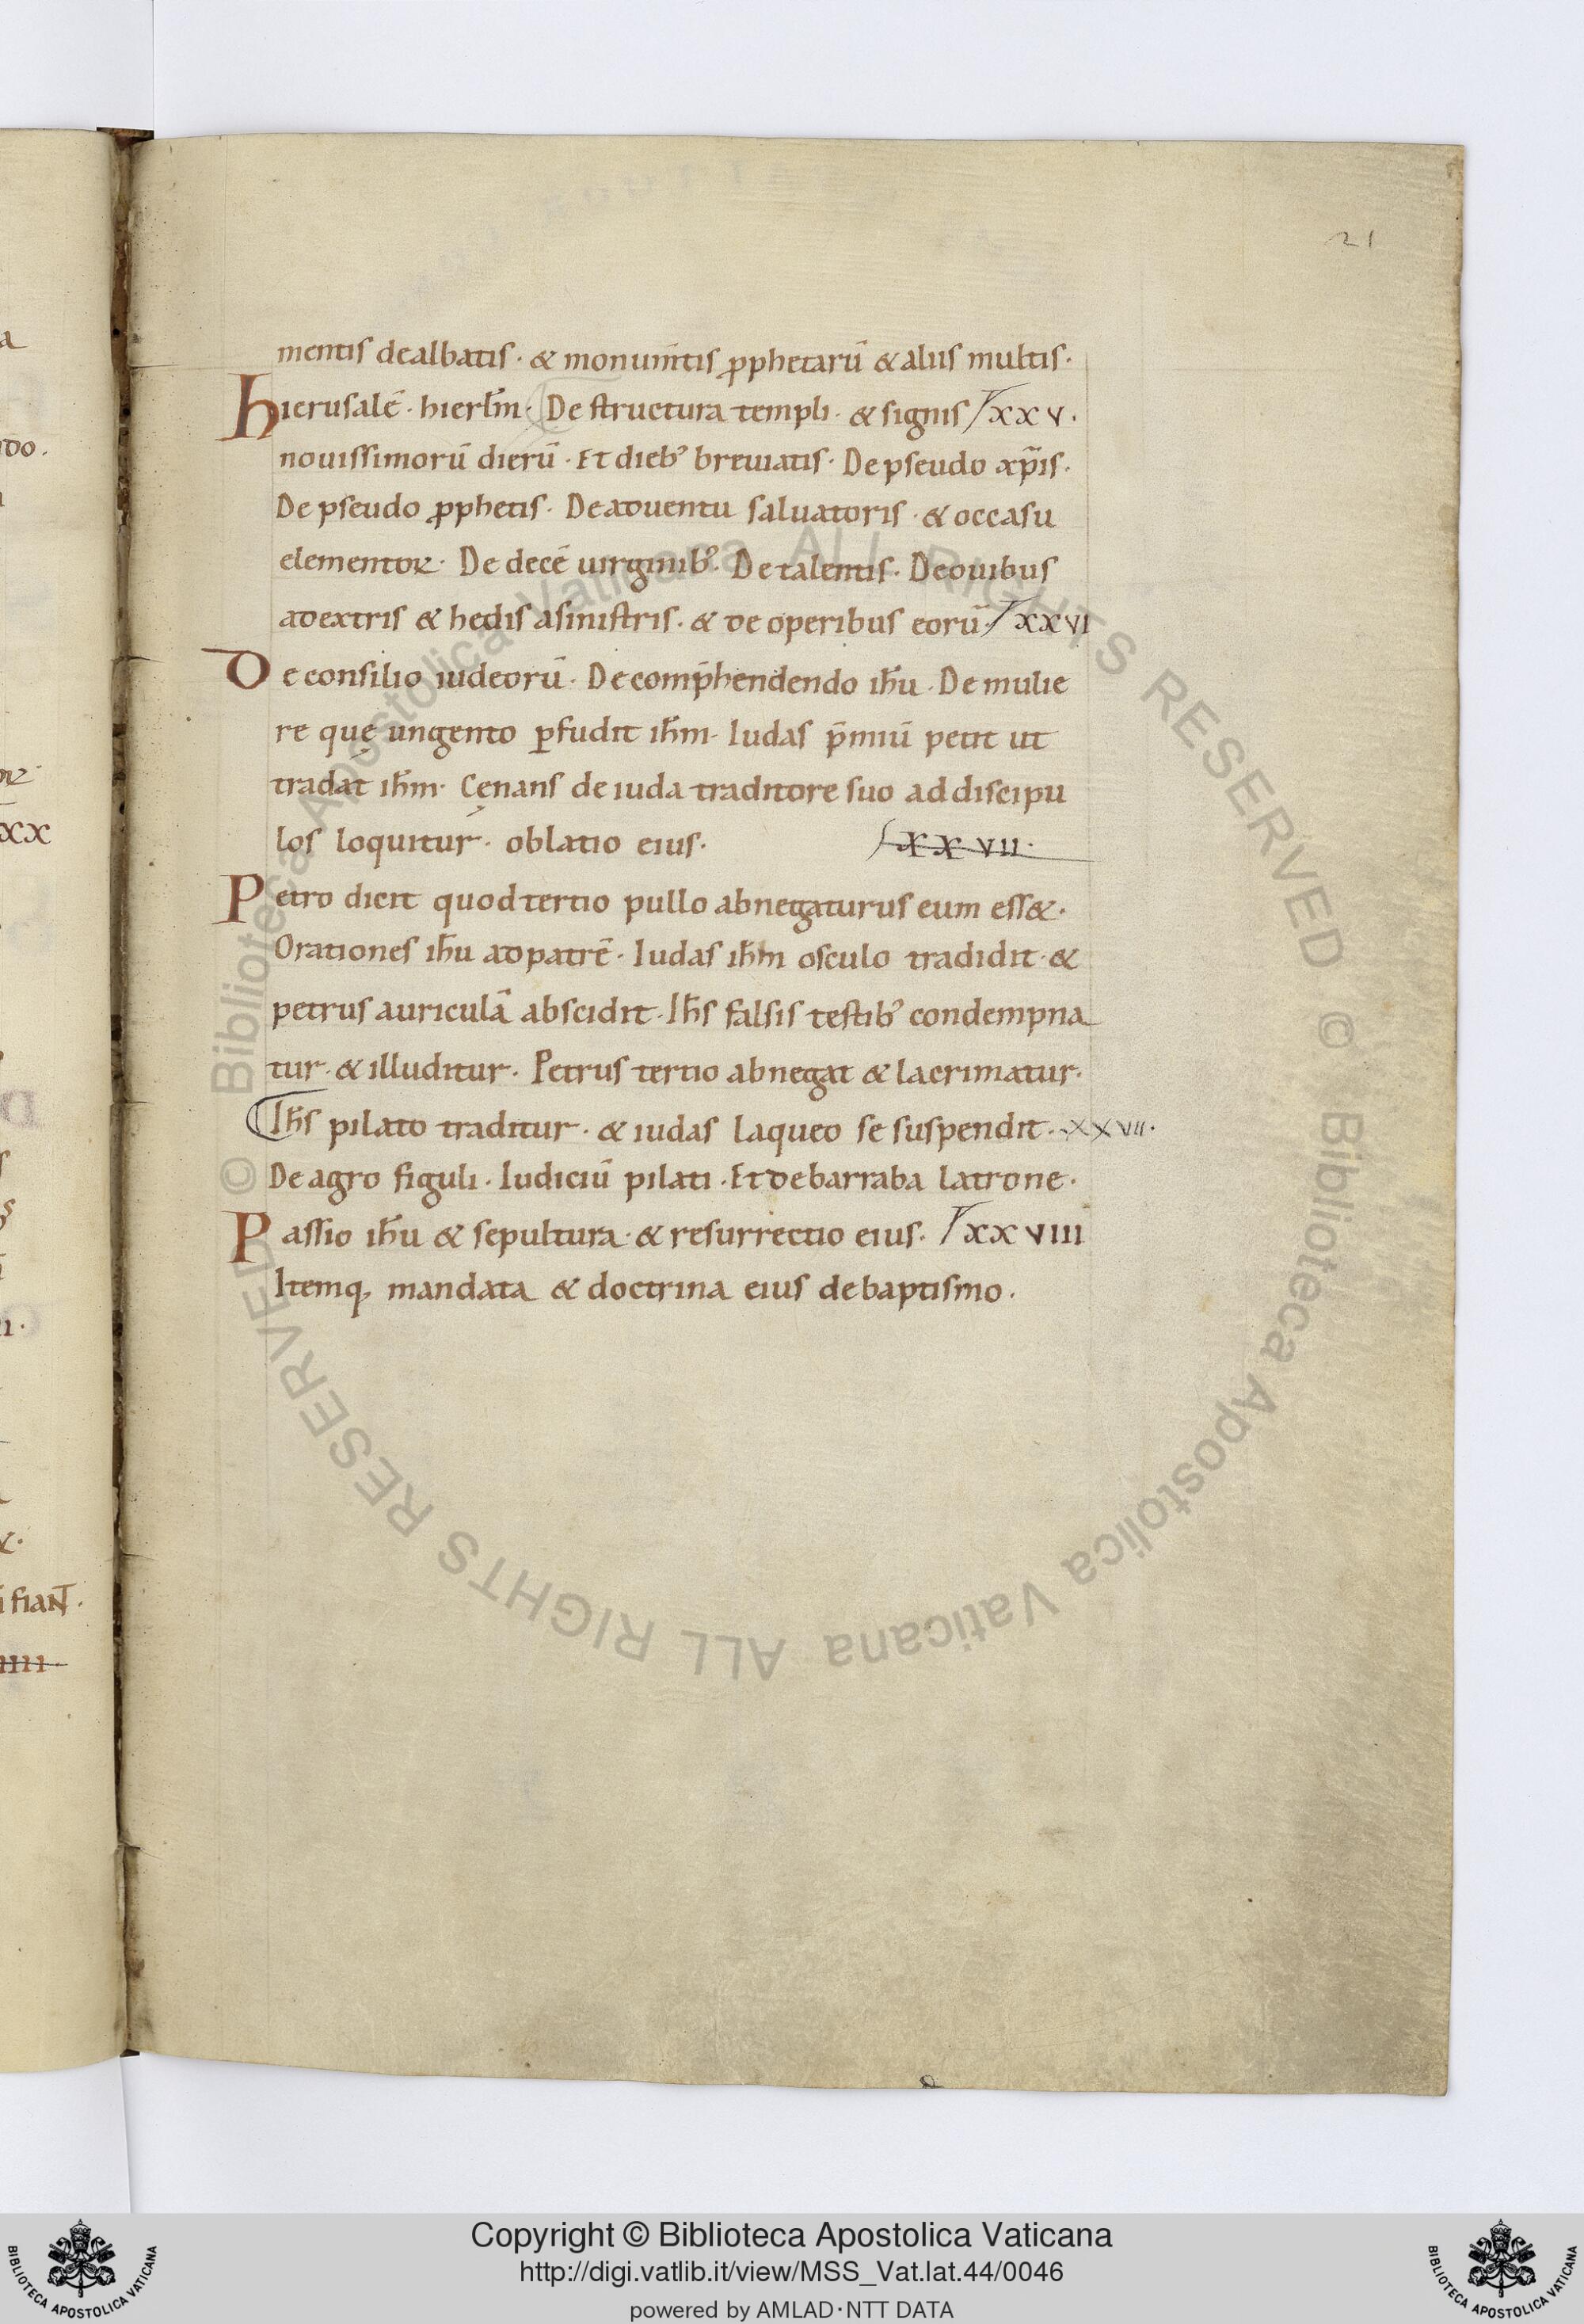 21
mentis dealbatis · & monum̄tis ꝓphetarū & aliis multis ·
Hierusalē · hierl̄m · De structura templi · & signis XXV ·
nouissimorū dierū · Et dieb; breuiatis · De pseudo xp̄is ·
De pseudo ꝓphetis · De aduentu saluatoris · & occasu
elementoꝝ · De decē uirginib; · De talentis · De ouibus
adextris & hedis asinistris · & de operibus eorū · XXVI
De consilio iudeorū · De comp̄hendendo ih̄u · De mulie
re quę ungento ꝑfudit ih̄m · Iudas p̄miū petit ut
tradat ih̄m · Cenans de iuda traditore suo ad discipu
los loquitur · oblatio eius · XXVII ·
Petro dicit quod tertio pullo abnegaturus eum ess& ·
Orationes ih̄u ad patrē · Iudas ih̄m osculo tradidit · &
petrus auriculā abscidit · Ih̄s falsis testib; condempna
tur · & illuditur · Petrus tertio abnegat & lacrimatur ·
Ih̄s pilato traditur · & iudas laqueo se suspendit · XXVII ·
De agro figuli · Iudiciū pilati · Et de barraba latrone ·
Passio ih̄u & sepultura · & resurrectio eius · XXVIII
Itemq; mandata & doctrina eius de baptismo ·
do ·
XX
fiaNT ·
IIII ·
© Biblioteca Apostolica Vaticana ALL RIGHTS RESERVED © Biblioteca Apostolica Vaticana ALL RIGHTS RESERVED
Copyright © Biblioteca Apostolica Vaticana
http://digi.vatlib.it/view/MSS_Vat.lat.44/0046
powered by AMLAD·NTT DATA
BIBLIOTECA APOSTOLICA VATICANA
BIBLIOTECA APOSTOLICA VATICANA